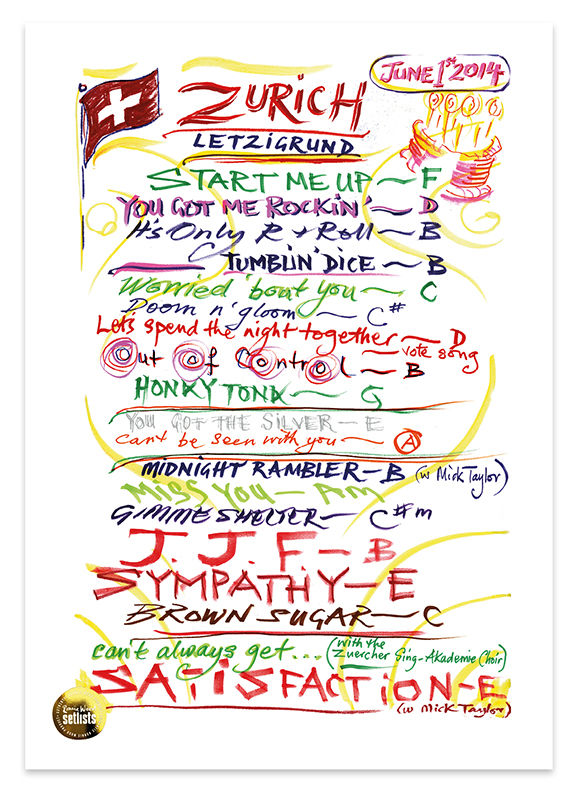 JUNE 1st 2014
ZURICH
LETZIGRUND
START ME UP — F
YOU GOT ME ROCKIN' — D
It's Only R + Roll — B
TUMBLIN' DICE — B
Worried 'bout you — C
Doom n' gloom — C#
Let's spend the night together — D
vote song
Out of Control — B
HONKY TONK — G
YOU GOT THE SILVER — E
can't be seen with you — A
MIDNIGHT RAMBLER — B (w Mick Taylor)
MISS YOU — Am
GIMME SHELTER — C#m
J.J.F. — B
SYMPATHY — E
BROWN SUGAR — C
can't always get... (with the
Zuercher Sing-Akademie Choir)
SATISFACTION — E
(w Mick Taylor)
Ronnie Wood
setlists